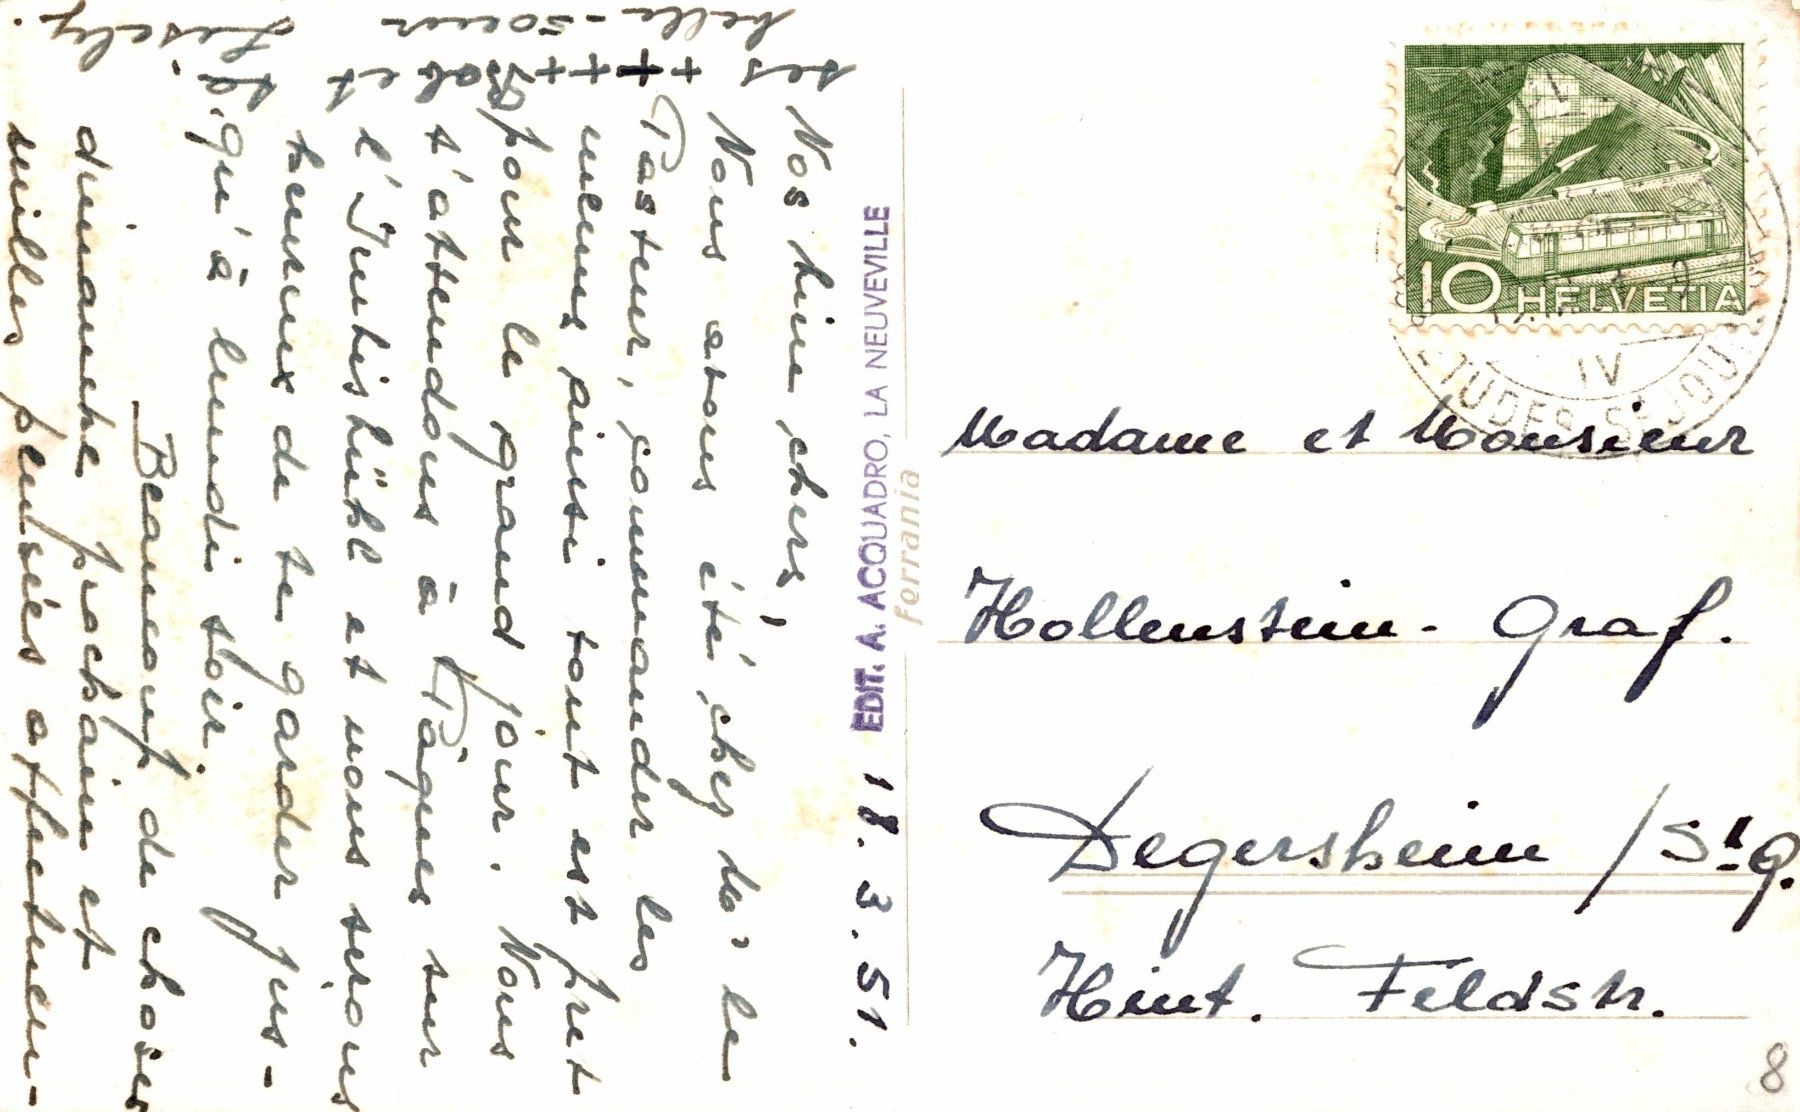 18. 3. 51.
Nos bien chers,
Nous avons été chez Mr le
Pasteur, commander les
menus ainsi tout est prêt
pour le grand jour. Nous
t'attendons à Pâques sur
l'Jntishübl et nous serons
heureux de te garder jus-
qu'à lundi soir.
Beaucoup de choses
dimanche prochain et
milles pensées affectueu-
ses
+ + + +
Bab et
ta
belle-soeur
Lisely.
EDIT. A. ACQUADRO, LA NEUVEVILLE
Ferrania
10 HELVETIA
IV
Madame et Monsieur
Hollenstein-Graf.
Degersheim / St. G.
Hint. Feldstr.
8